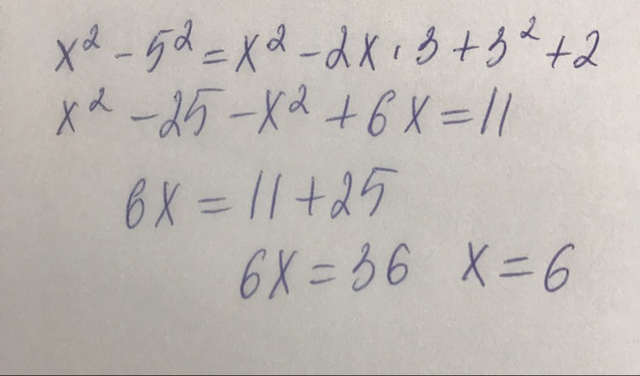 x² - 5² = x² - 2x · 3 + 3² + 2
x² - 25 - x² + 6x = 11
6x = 11 + 25
6x = 36 x = 6